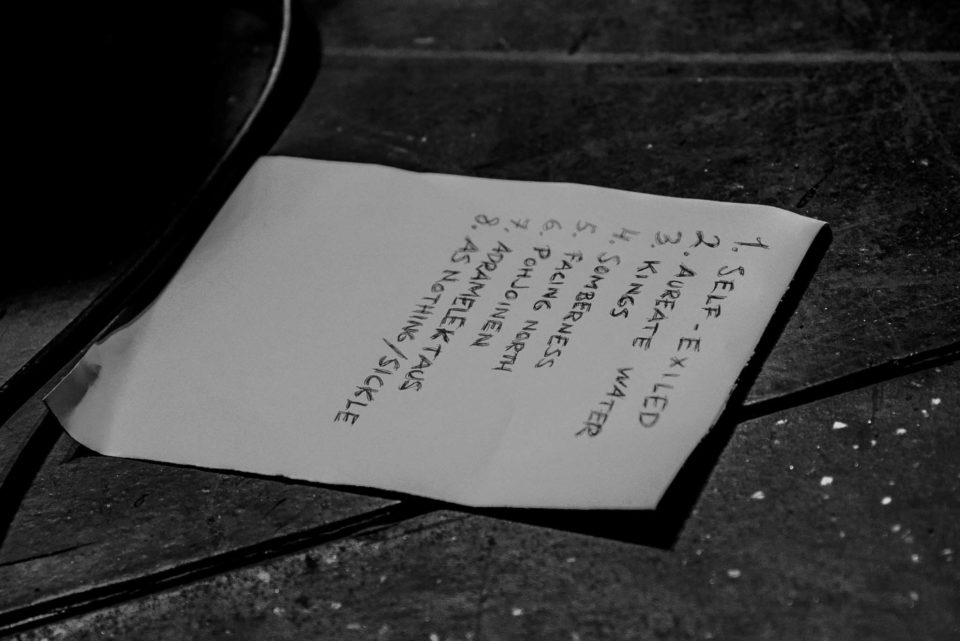 1. SELF-EXILED
2. AUREATE WATER
3. KINGS
4. SOMBERNESS
5. FACING NORTH
6. POHJOINEN
7. ADRAMELEKTAUS
8. AS NOTHING/SICKLE